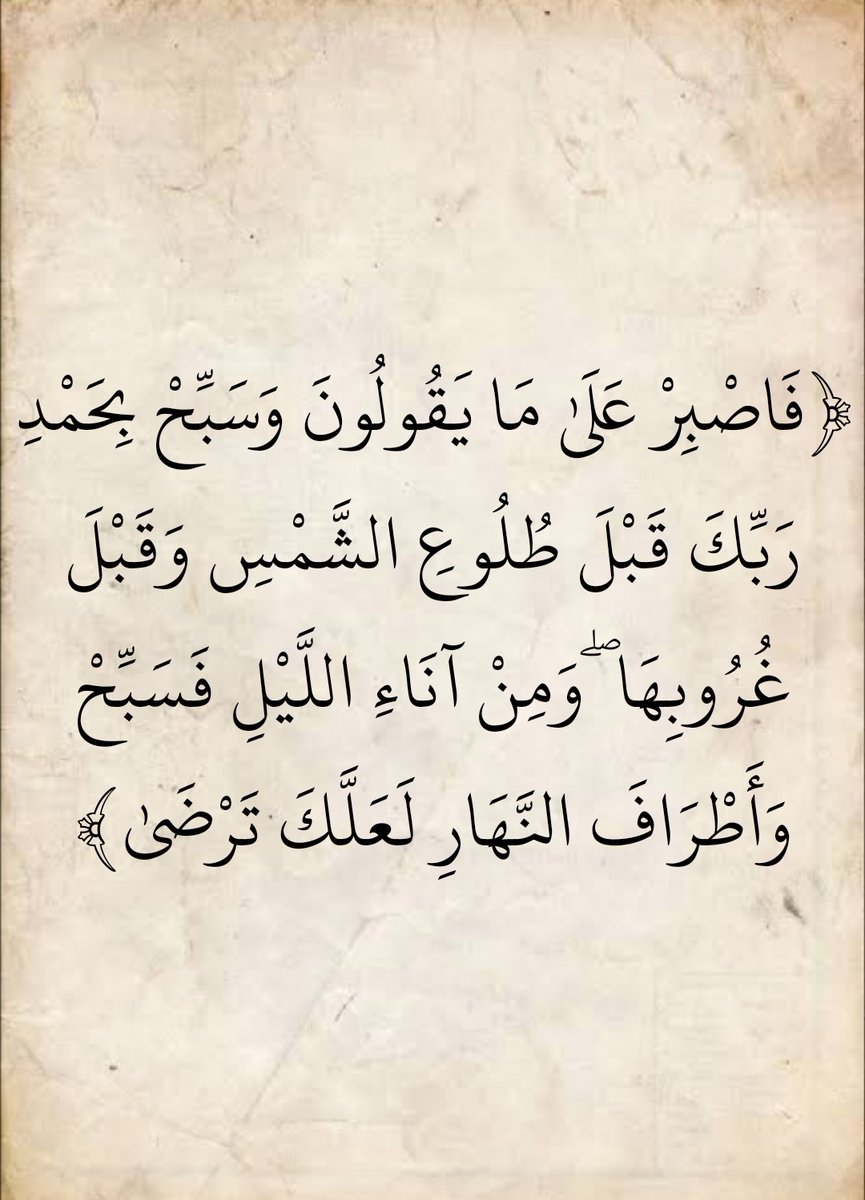 ﴿فَاصْبِرْ عَلَىٰ مَا يَقُولُونَ وَسَبِّحْ بِحَمْدِ
رَبِّكَ قَبْلَ طُلُوعِ الشَّمْسِ وَقَبْلَ
غُرُوبِهَا ۖ وَمِنْ آنَاءِ اللَّيْلِ فَسَبِّحْ
وَأَطْرَافَ النَّهَارِ لَعَلَّكَ تَرْضَىٰ﴾